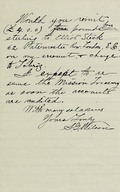 Would you remit
(£4.0.0) four pounds
sterling to Elliot Stock
62 Paternoster Row London, E.C
on my account & charge
to
I expect to re
the Mission
as soon the accounts
are audited.
With many salaams
Yours truly